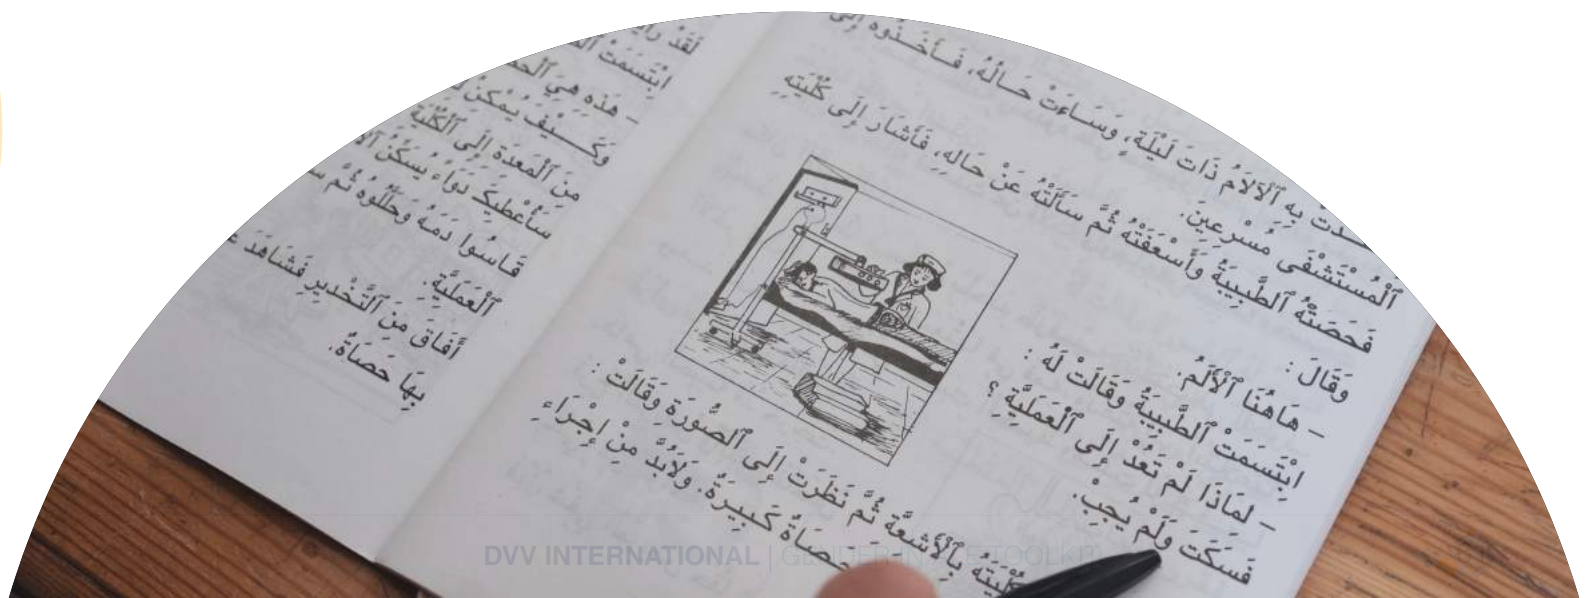 بِهِ ٱلْآلَامُ ذَاتَ لَيْلَةٍ، وَسَاءَتْ حَالُهُ، فَأَخَذُوهُ إِلَى
ٱلْمُسْتَشْفَى مُسْرِعِينَ.
فَحَصَتْهُ ٱلطَّبِيبَةُ وَأَسْعَفَتْهُ ثُمَّ سَأَلَتْهُ عَنْ حَالِهِ، فَأَشَارَ إِلَى كُلْيَتِهِ
وَقَالَ :
– هَاهُنَا ٱلْأَلَمُ.
ابْتَسَمَتْ ٱلطَّبِيبَةُ وَقَالَتْ لَهُ :
– لِمَاذَا لَمْ تَعُدْ إِلَى ٱلْعَمَلِيَّةِ ؟
فَسَكَتَ وَلَمْ يُجِبْ.
كُلْيَتَهُ بِٱلْأَشِعَّةِ ثُمَّ نَظَرَتْ إِلَى ٱلصُّورَةِ وَقَالَتْ :
حَصَاةٌ كَبِيرَةٌ. وَلَابُدَّ مِنْ إِجْرَاءِ
لَقَدْ
ابْتَسَمَتْ
– هَذِهِ هِيَ
وَكَيْفَ يُمْكِنُ
مِنَ ٱلْمَعِدَةِ إِلَى ٱلْكُلْيَةِ
سَأُعْطِيكَ دَوَاءً يُسَكِّنُ
قَاسُوا دَمَهُ وَحَلَّلُوهُ ثُمَّ
ٱلْعَمَلِيَّةِ.
أَفَاقَ مِنَ ٱلتَّخْدِيرِ فَشَاهَدَ
بِهَا حَصَاةٌ.
DVV INTERNATIONAL | GENDER IN TOOLKIT